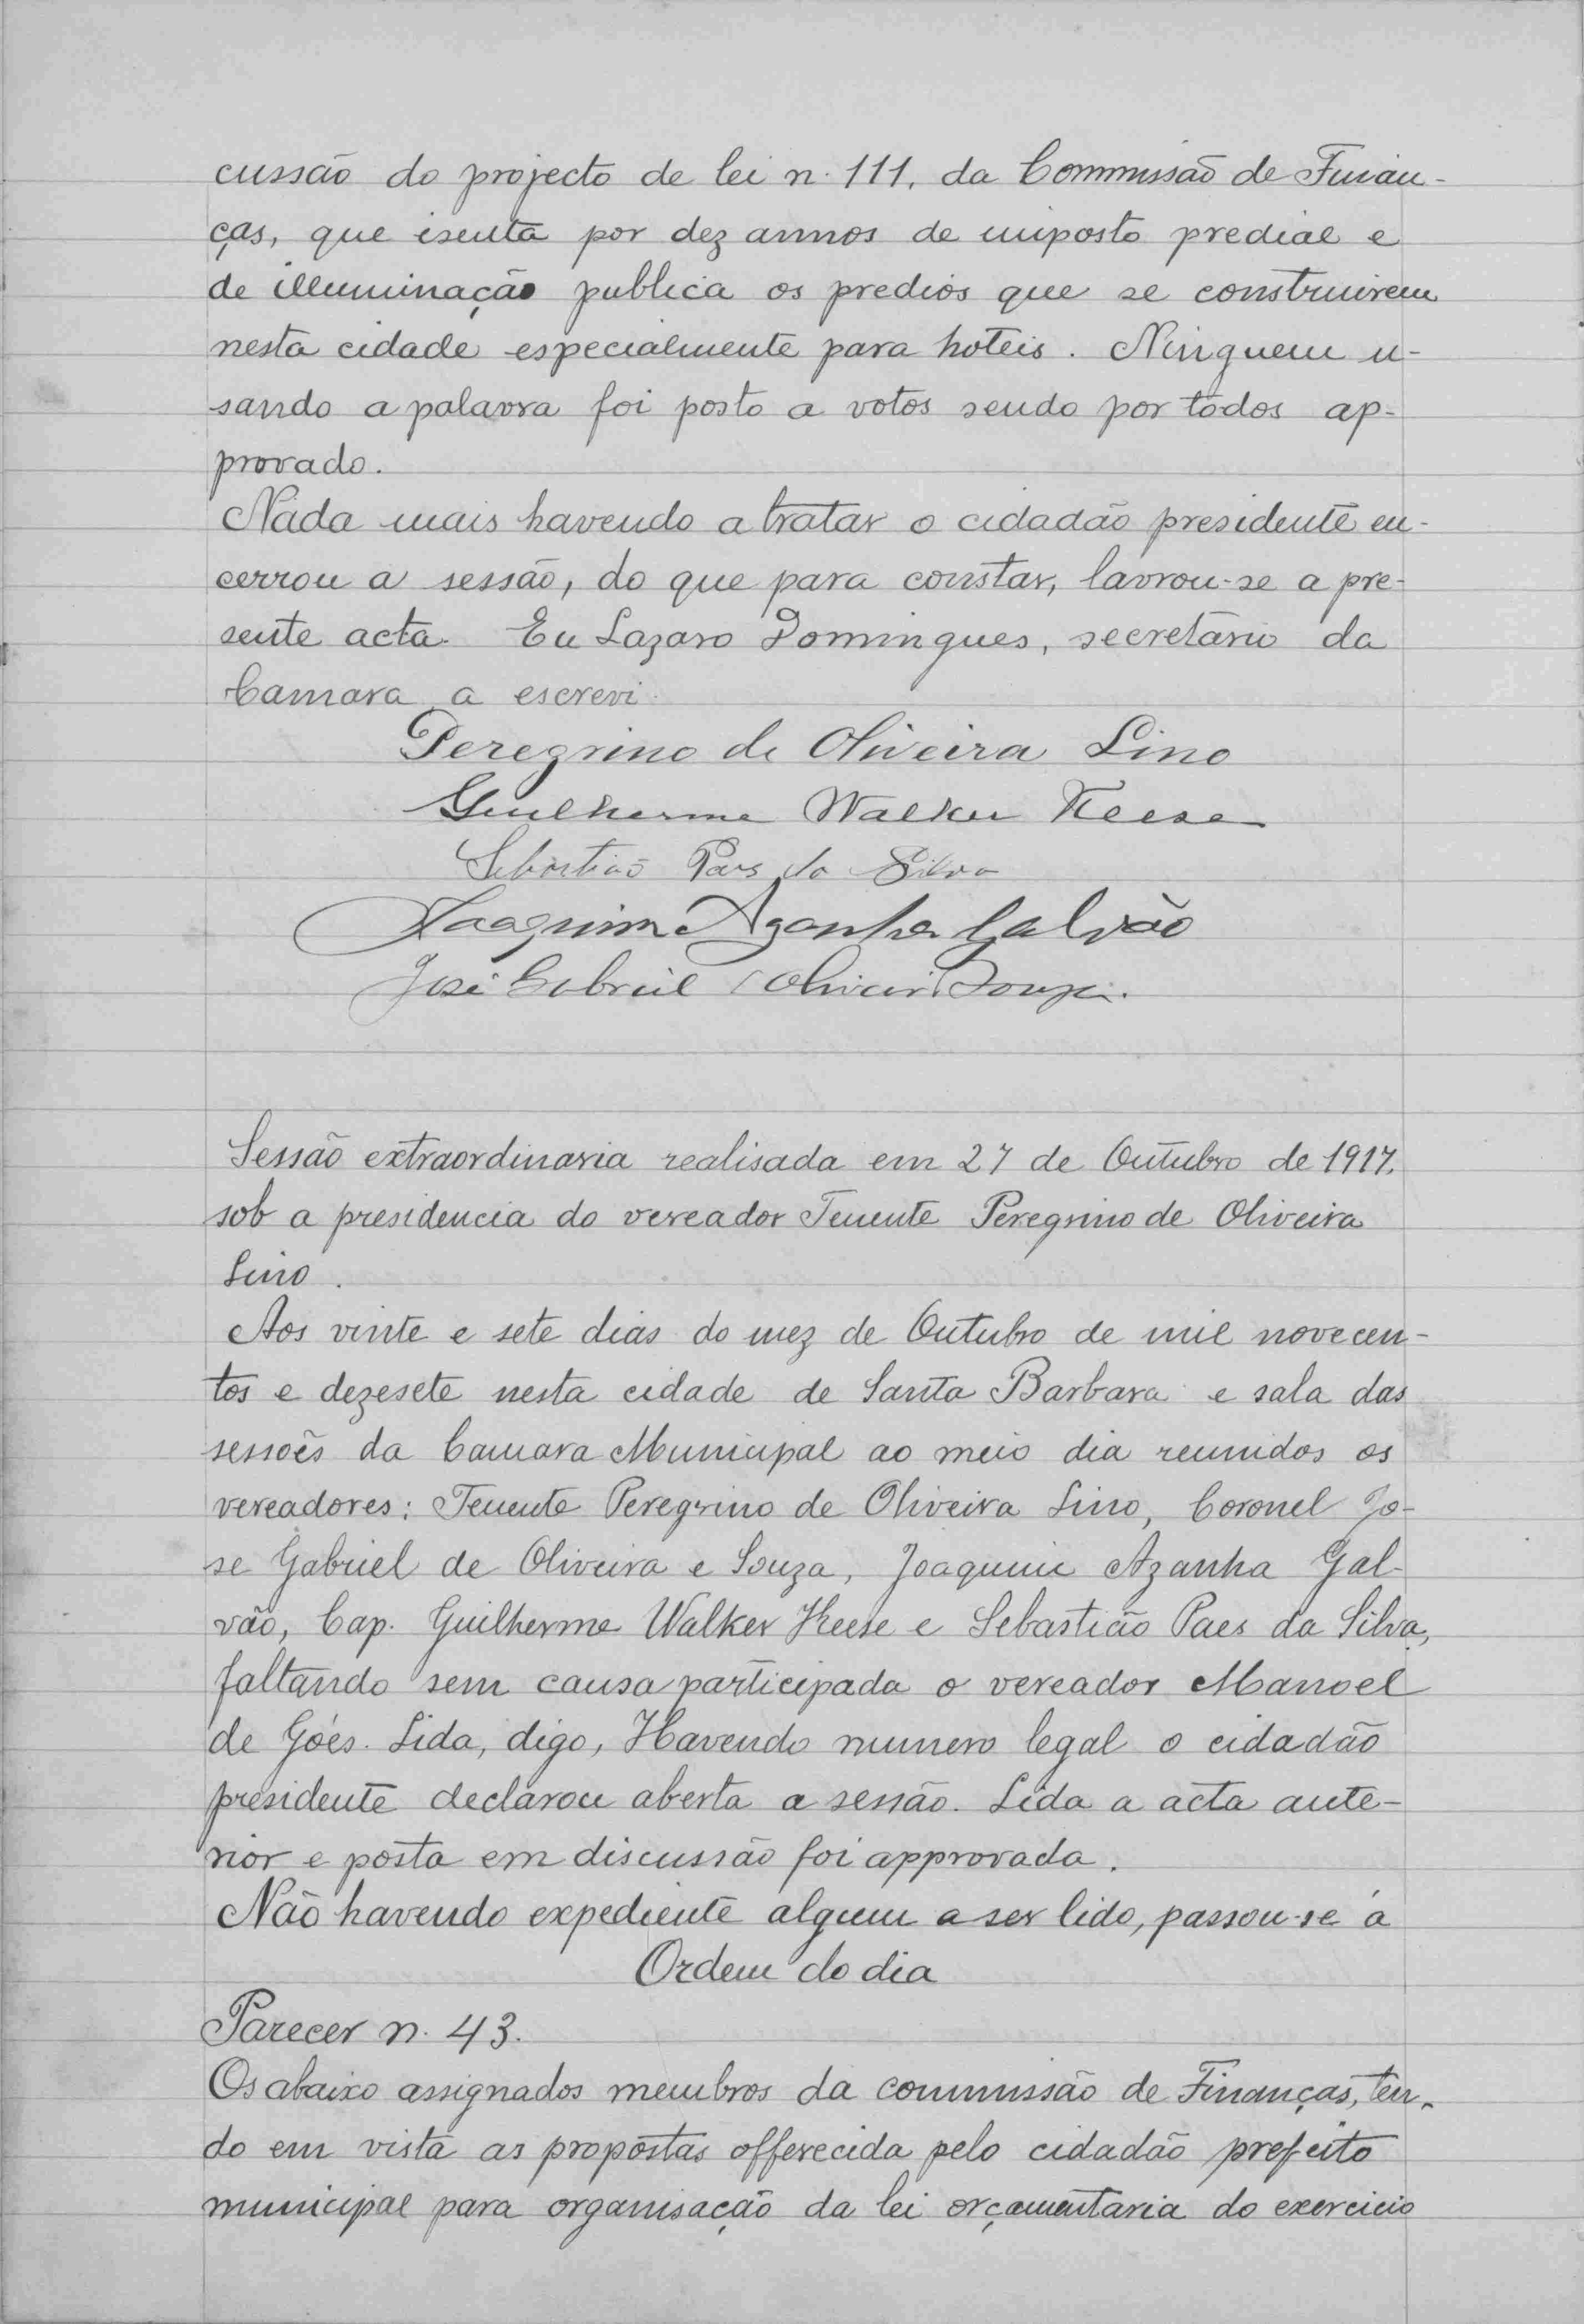 cussão do projecto de lei n. 111. da Commissão de Finan-
ças, que isenta por dez annos de imposto predial e
de illuminação publica os predios que se construirem
nesta cidade especialmente para hoteis. Ninguem u-
sando a palavra foi posto a votos sendo por todos ap-
provado.
Nada mais havendo a tratar o cidadão presidente en-
cerrou a sessão, do que para constar, lavrou-se a pre-
sente acta. Eu Lazaro Domingues, secretario da
Camara a escrevi.
Peregrino de Oliveira Lino
Guilherme Walker Keese
Sebastião Paes da Silva
Joaquim Azanha Galvão
José Gabriel Oliveira Souza.
Sessão extraordinaria realisada em 27 de Outubro de 1917.
sob a presidencia do vereador Tenente Peregrino de Oliveira
Lino.
Aos vinte e sete dias do mez de Outubro de mil novecen-
tos e dezesete nesta cidade de Santa Barbara e sala das
sessões da Camara Municipal ao meio dia reunidos os
vereadores: Tenente Peregrino de Oliveira Lino, Coronel Jo-
se Gabriel de Oliveira e Souza, Joaquim Azanha Gal-
vão, Cap. Guilherme Walker Keese e Sebastião Paes da Silva,
faltando sem causa participada o vereador Manoel
de Góes. Lida, digo, Havendo numero legal o cidadão
presidente declarou aberta a sessão. Lida a acta ante-
rior e posta em discussão foi approvada.
Não havendo expediente algum a ser lido, passou-se á
Ordem do dia
Parecer n. 43.
Os abaixo assignados membros da commissão de Finanças, ten-
do em vista as propostas offerecida pelo cidadão prefeito
municipal para organisação da lei orçamentaria do exercicio